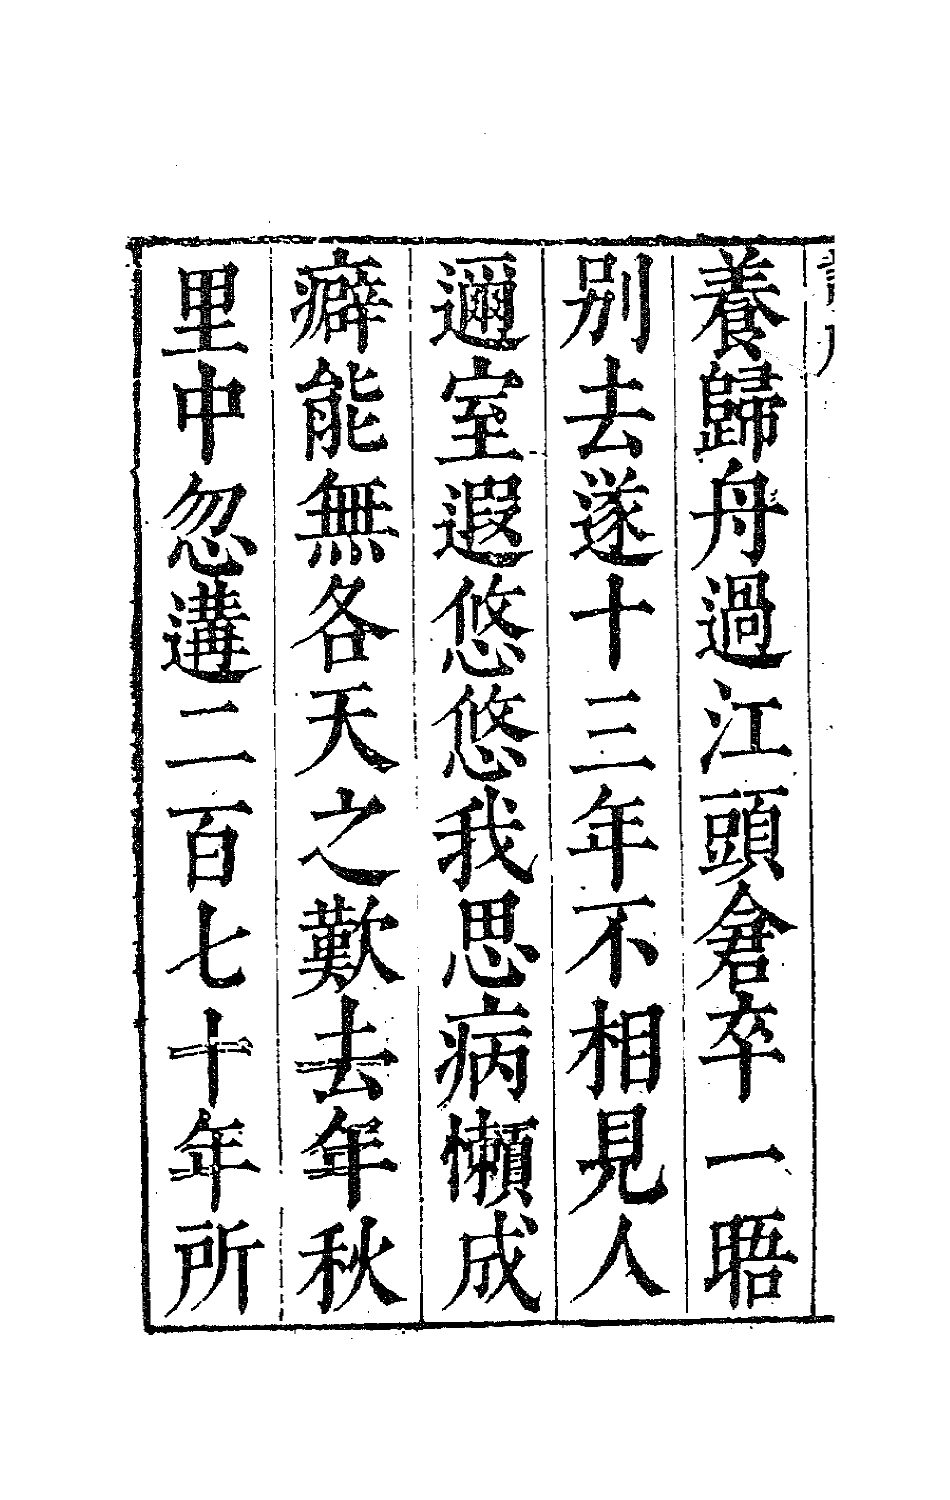 養歸舟過江頭倉卒一晤
别去遂十三年不相見人
邇室遐悠悠我思病懶成
癖能無各天之歎去年秋
里中忽遘二百七十年所